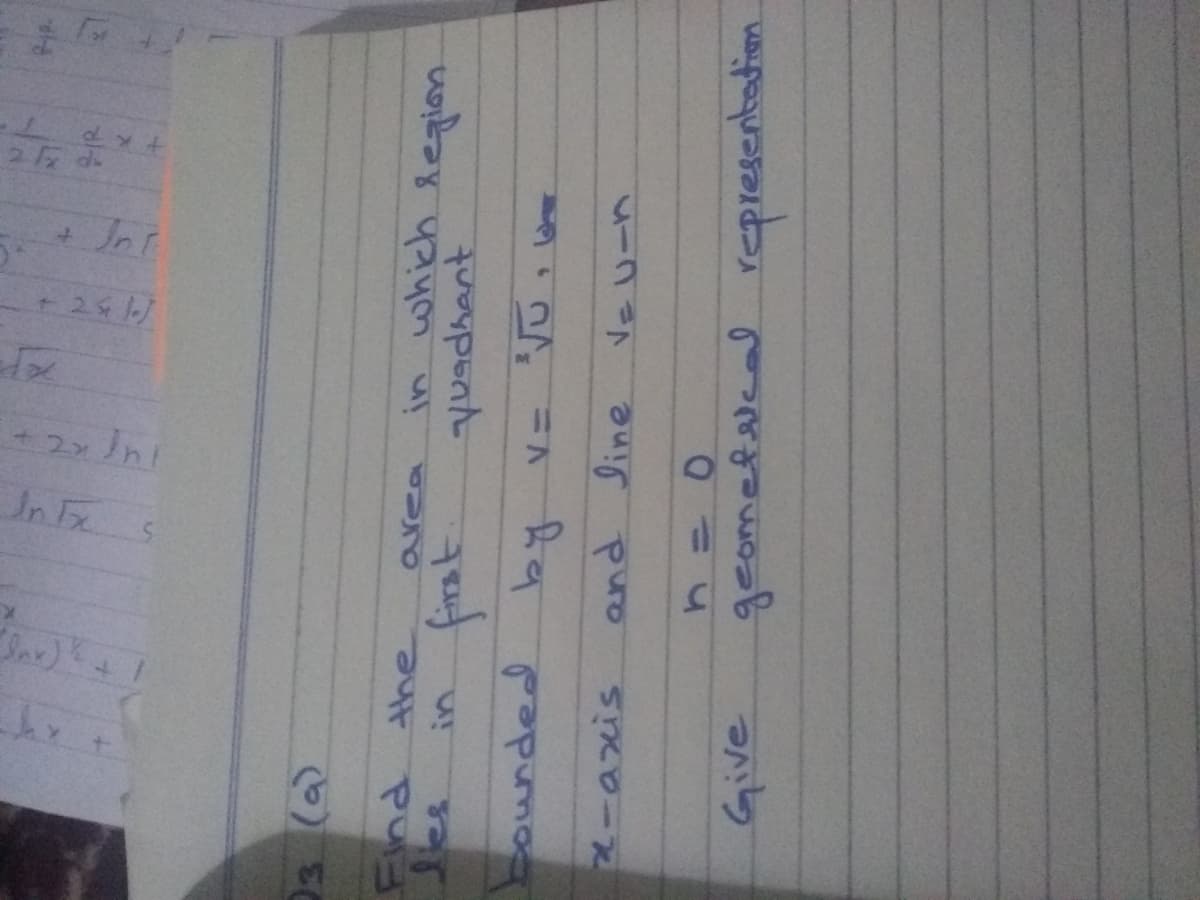 Q3 (a)
Find the area in which region
lies in first quadrant
bounded by v = ∛u,
x-axis and line v = u-n
n = 0
Give geometrical representation
+ 2x ln
ln √x